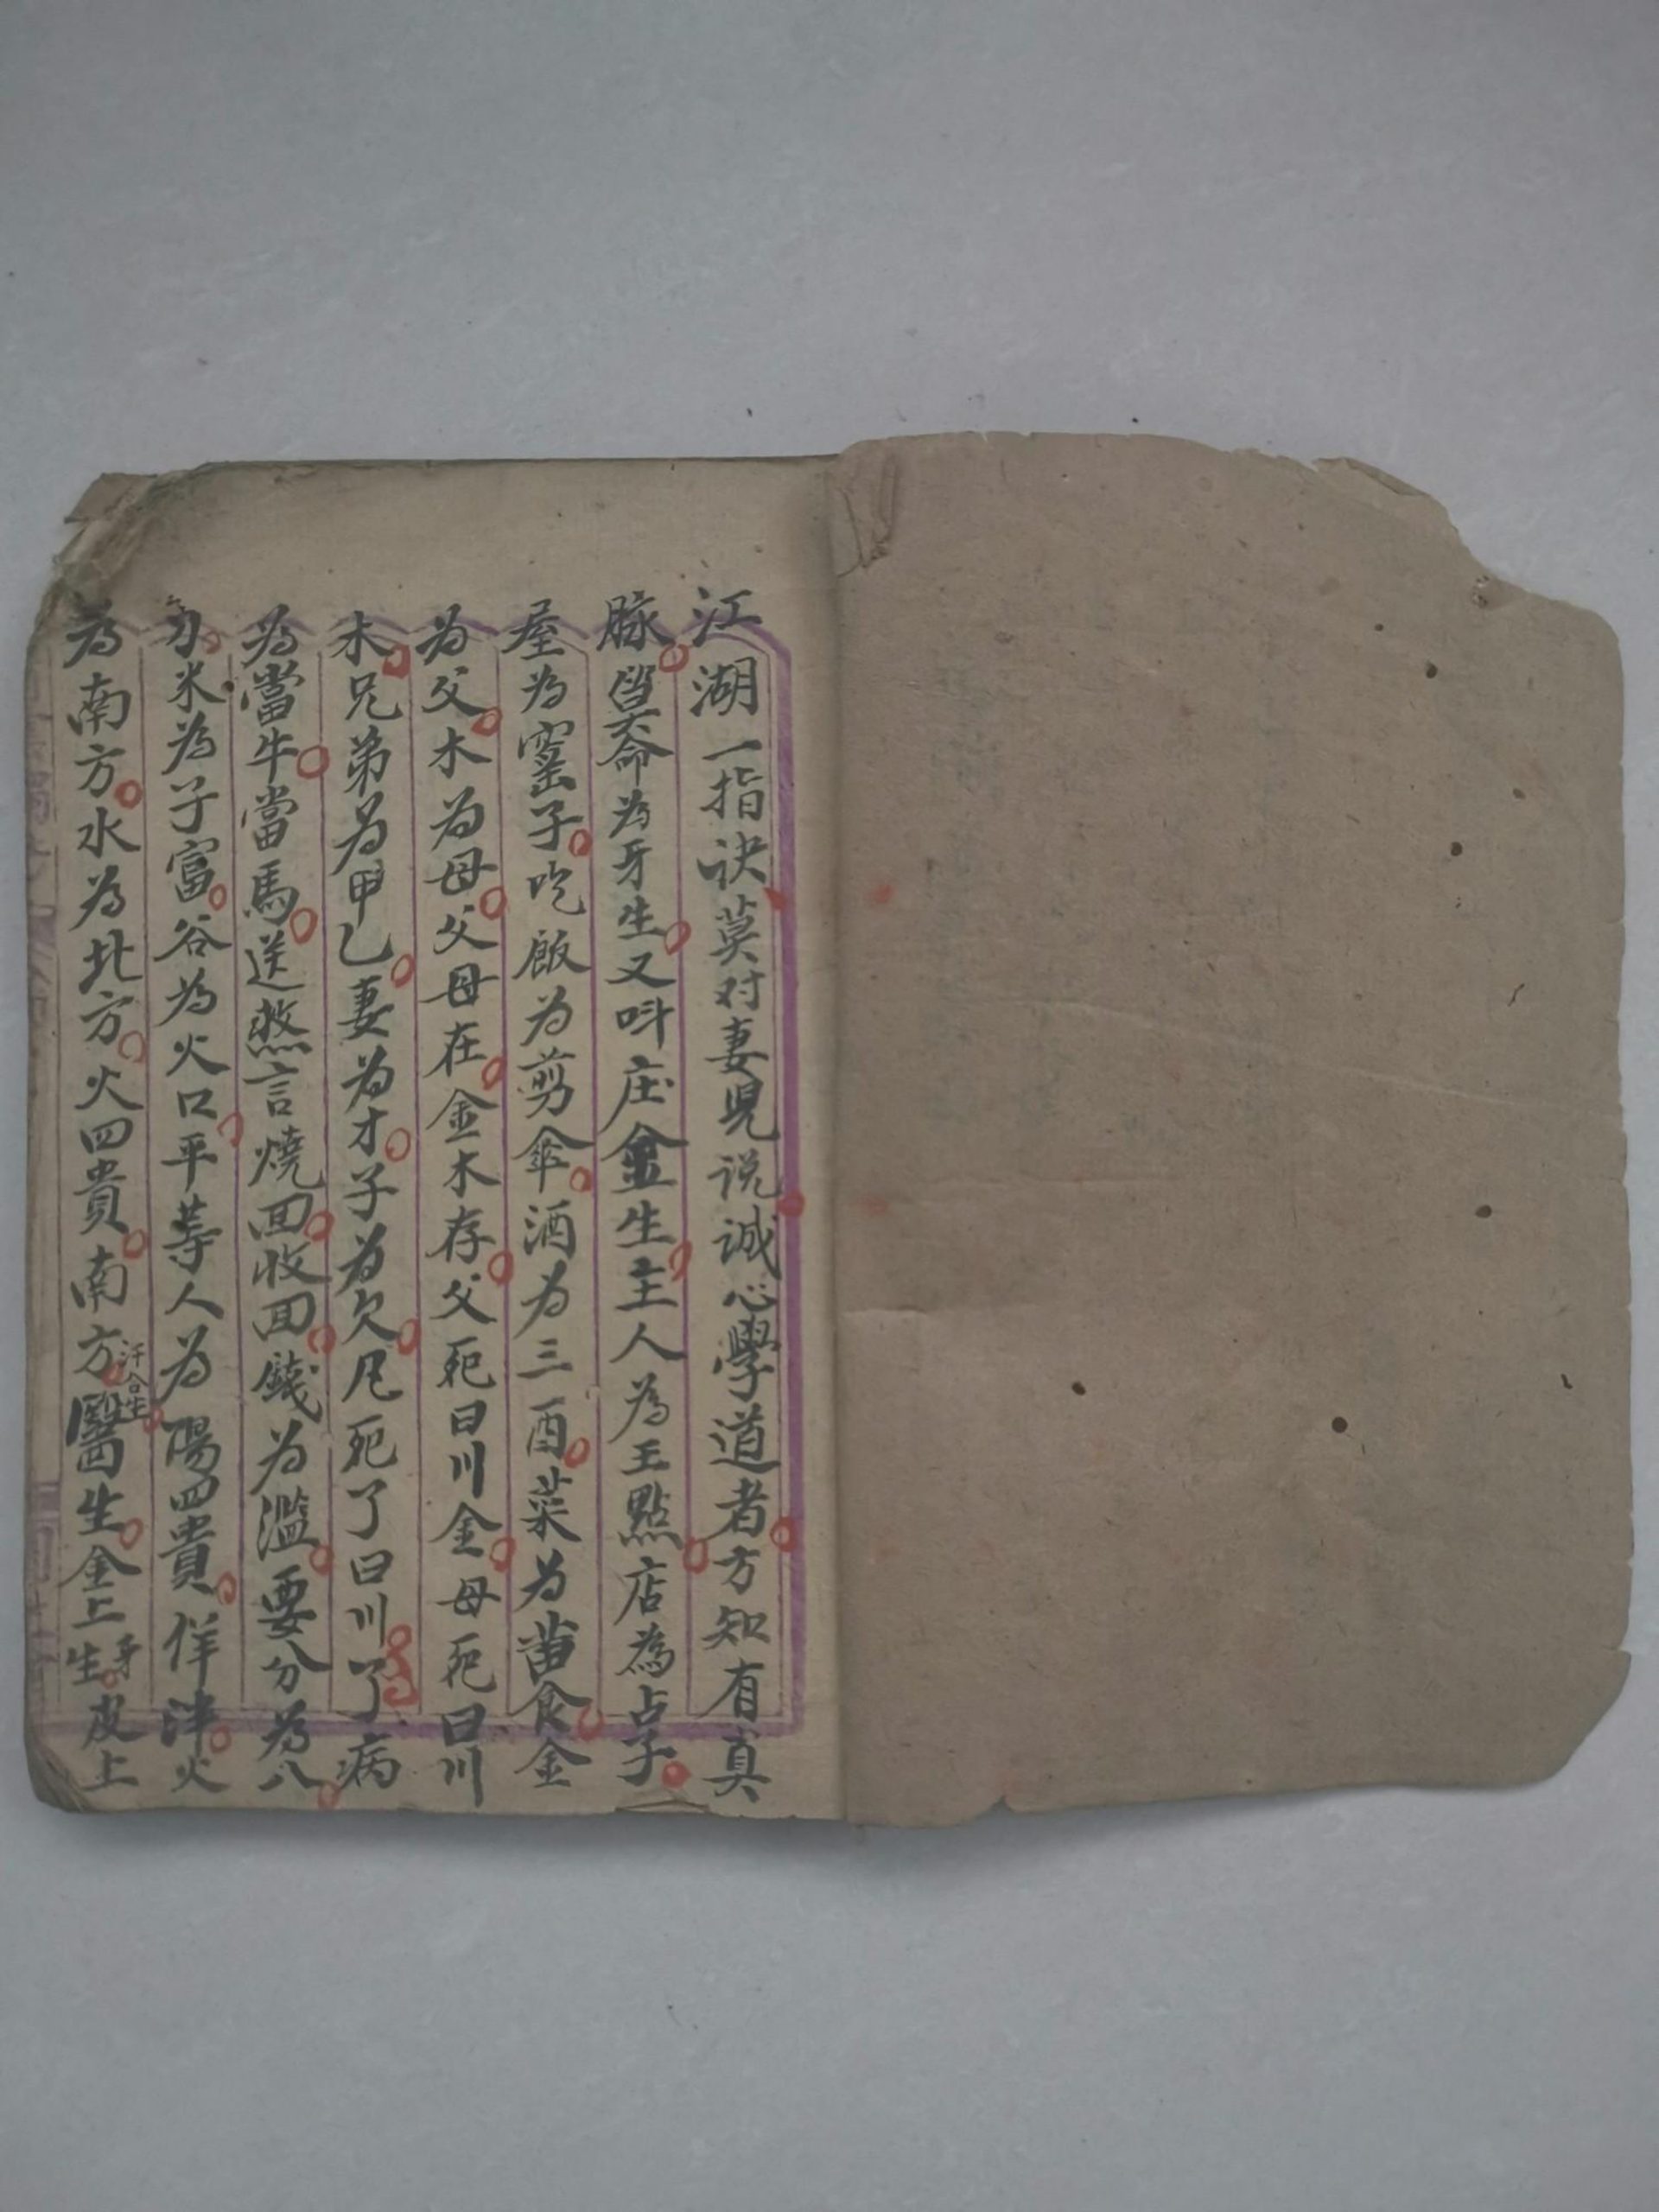 江湖一指訣莫对妻児说誠心學道者方知有真
脉筭命为牙生又呌庄金生主人為王點店為占子
屋为窑子吃飯为剪伞酒为三酉菜为苗食金
为父木为母父母在金木存父死曰川金母死曰川
木兄弟为甲乙妻为才子为欠凡死了曰川了病
為當牛當馬送煞言燒回收回錢为濫要分為八
分米為子富谷為火口平等人为陽四貴佯津火
為南方水為北方火四貴南方醫生金上牙生皮上
汗合生